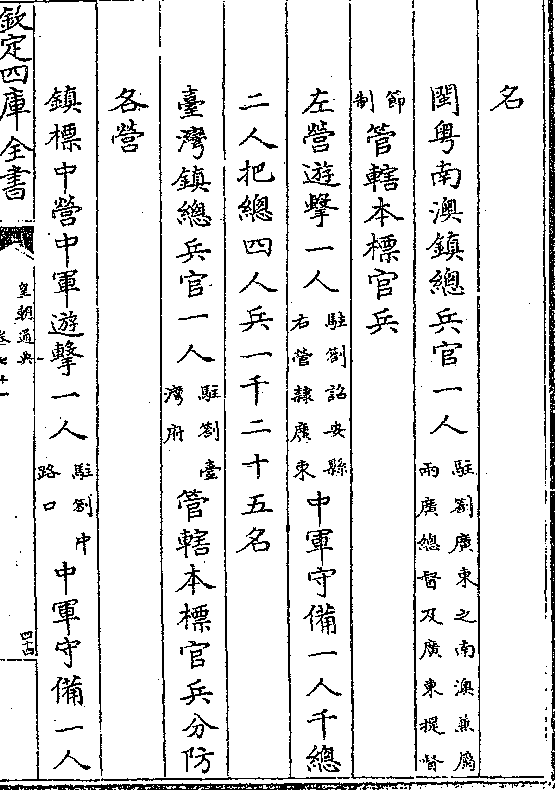 名
閩粤南澳鎮總兵官一人駐劄廣東之南澳兼屬兩廣總督及廣東提督
節制管轄本標官兵
左營遊擊一人駐劄詔安縣右營隸廣東中軍守備一人千總
二人把總四人兵一千二十五名
臺灣鎮總兵官一人駐劄臺灣府管轄本標官兵分防
各營
鎮標中營中軍遊擊一人駐劄中路口中軍守備一人
欽定四庫全書
皇朝通典
卷七十一